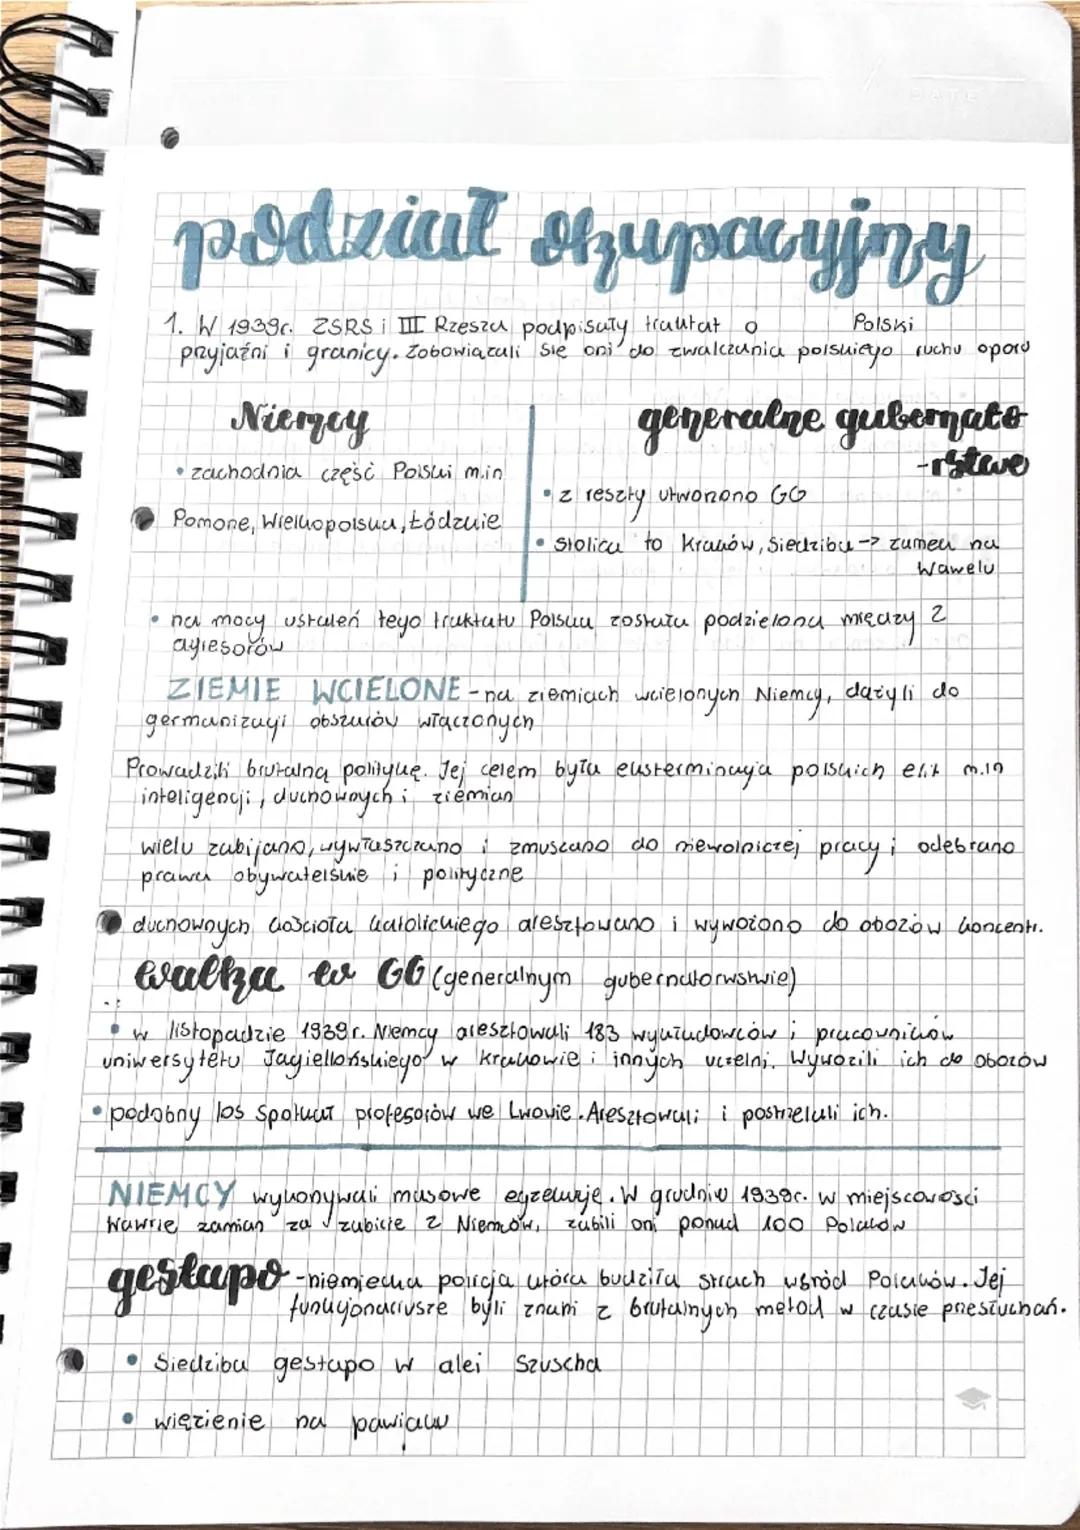 podział okupacyjny
1. W 1939r. ZSRS i III Rzesza podpisały traktat o Polski
przyjaźni i granicy. Zobowiązali się oni do zwalczania polskiego ruchu oporu
Niemcy
• zachodnia część Polski m.in
Pomorze, Wielkopolska, Łódzkie
generalne gubernato
-rstwo
• z reszty utworzono GG
• stolica to Kraków, Siedziba -> zamek na
Wawelu
• na mocy ustaleń tego traktatu Polska została podzielona między 2
agresorów
ZIEMIE WCIELONE - na ziemiach wcielonych Niemcy, dążyli do
germanizacji obszarów włączonych
Prowadzili brutalną politykę. Jej celem była eksterminacja polskich elit m.in
inteligencji, duchownych i ziemian
wielu zabijano, wywłaszczano i zmuszano do niewolniczej pracy i odebrano
prawa obywatelskie i polityczne
duchownych kościoła katolickiego aresztowano i wywożono do obozów koncentr.
walka w GG (generalnym gubernatorwstwie)
• w listopadzie 1939r. Niemcy aresztowali 183 wykładowców i pracowników
uniwersytetu Jagiellońskiego w Krakowie i innych uczelni. Wywozili ich do obozów
• podobny los spotkał profesorów we Lwowie. Aresztowali i postrzelali ich.
NIEMCY wykonywali masowe egzekucje. W grudniu 1939r. w miejscowości
Wawrze zamian za zabicie 2 Niemców, zabili oni ponad 100 Polaków
gestapo - niemiecka policja która budziła strach wśród Polaków. Jej
funkcjonariusze byli znani z brutalnych metod w czasie przesłuchań.
• Siedziba gestapo w alei Szuscha
• więzienie na pawiaku